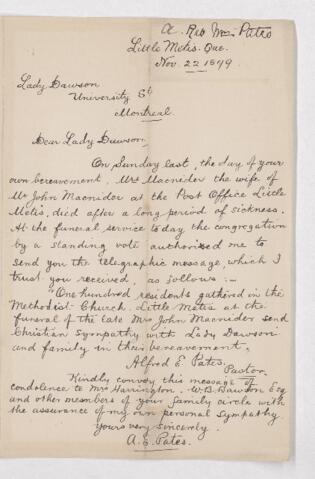 A. Rev Mr Pates
Little Metis. Que.
Nov. 22 1899.
Lady Dawson
University St
Montreal.
Dear Lady Dawson,
On Sunday last, the day of your
own bereavement, Mrs Macnider the wife of
Mr John Macnider at the Post Office Little
Metis, died after a long period of sickness.
At the funeral service today the congregation
by a standing vote authorized me to
send you the telegraphic message, which I
trust you received, as follows:-
"One hundred residents gathered in the
Methodist Church, Little Metis at the
funeral of the late Mrs John Macnider send
Christian sympathy with Lady Dawson
and family in their bereavement.
Alfred E. Pates.
Pastor.
Kindly convey this message of
condolence to Mrs Harrington, W. B. Dawson Esq
and other members of your family circle with
the assurance of my own personal sympathy
Yours very sincerely.
A. E. Pates.